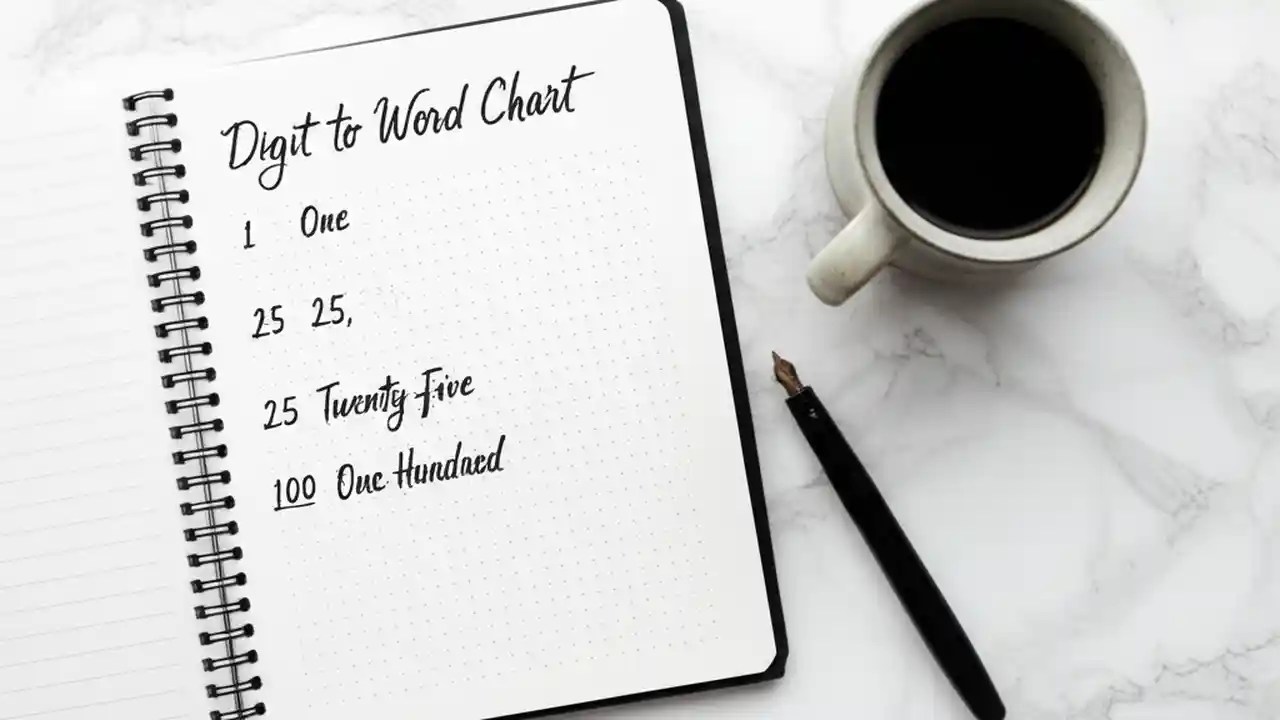 Digit to Word Chart
1 One
25 25,
25 Twenty Five
100 One Hundred